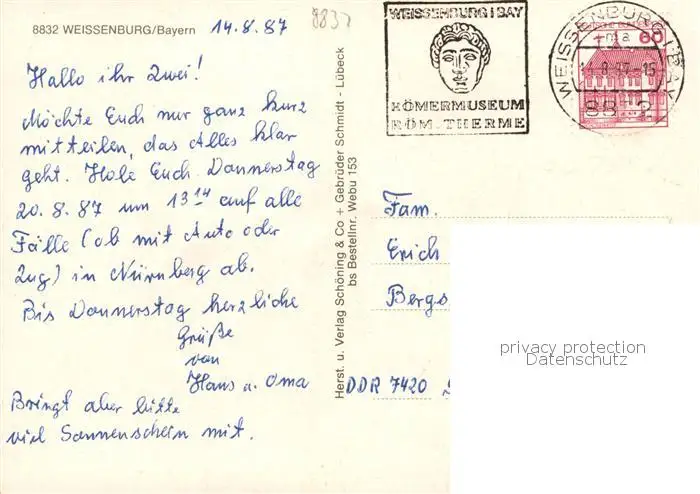 8832 WEISSENBURG/Bayern 14.8.87
8832
Hallo ihr zwei!
Möchte Euch nur ganz kurz
mitteilen, das Alles klar
geht. Hole Euch Donnerstag
20.8.87 um 13 14 auf alle
Fälle (ob mit Auto oder
Zug) in Nürnberg ab.
Bis Donnerstag herzliche
Grüße
von
Hans u. Oma
Bringt aber bitte
viel Sonnenschein mit.
Herst. u. Verlag Schöning & Co + Gebrüder Schmidt - Lübeck
bs Bestellnr. Webu 153
WEISSENBURG I BAY
RÖMERMUSEUM
RÖM. THERME
WEISSENBURG I BAY
60
Fam.
Erich
Bergs
DDR 7420
privacy protection
Datenschutz